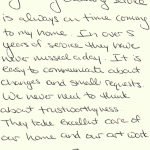 is always on time coming
to my home. In over 5
years of service they have
never missed a day. It is
easy to communicate about
changes and small requests
We never need to think
about trustworthyness
They take excellent care of
our home and our art work